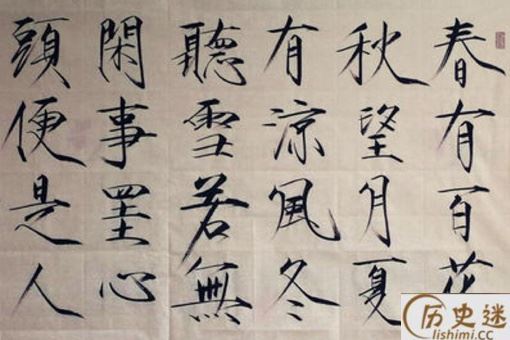 春有百花
秋望月夏
有涼風冬
聽雪若無
閑事罣心
頭便是人
历史迷
lishimi.cc